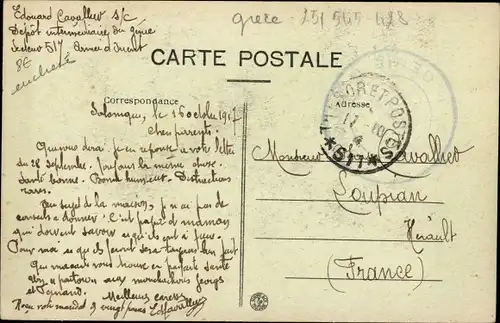 Edouard Cavallier s/c
Dépôt intermédiaire du génie
Secteur 517 Armée d'Orient
8E
grece 251 565 428
CARTE POSTALE
Correspondance
Adresse
TRESOR ET POSTES
* 517 *
Salonique, le 16 octobre 1917
Chers parents.
Que vous dirai-je en réponse à votre lettre
du 28 septembre. Toujours la même chose.
Santé bonne. Bonne humeur. Distractions
rares.
Au sujet de la maison, je n'ai pas de
conseils à donner. C'est papa et maman
qui doivent savoir ce qu'ils ont à faire.
Pour moi ce qu'ils feront sera toujours bien fait
Que ma carte vous trouve en parfaite santé
Meilleures caresses
Cavallier
Monsieur Cavallier
Loupian
Hérault
(France)